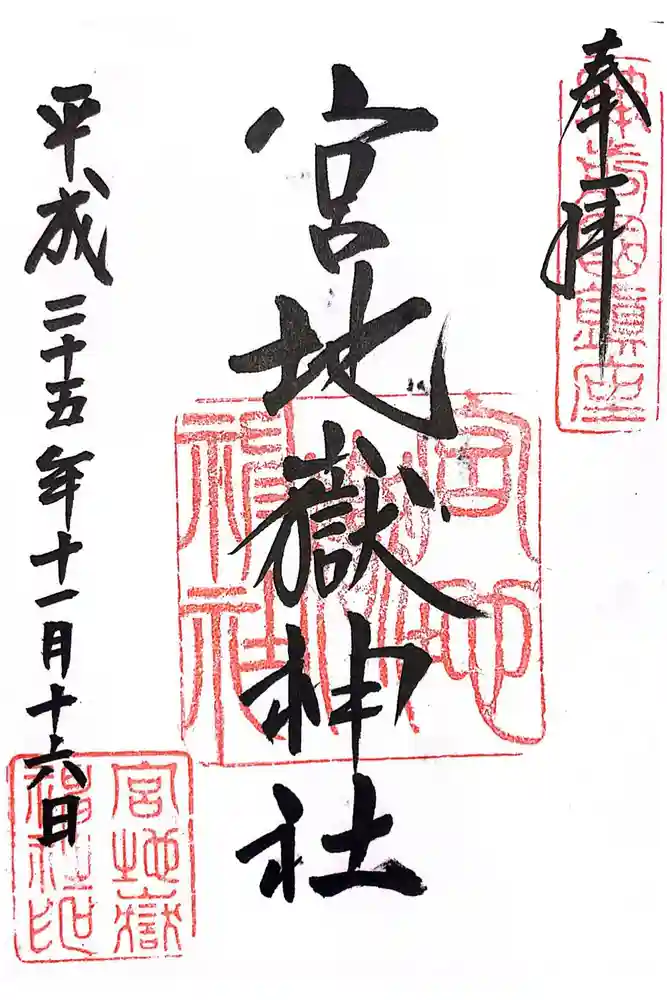 奉拝
筑前國鎮座
宮地嶽神社
宮地嶽神社
平成二十五年十一月十六日
宮地嶽
神社印